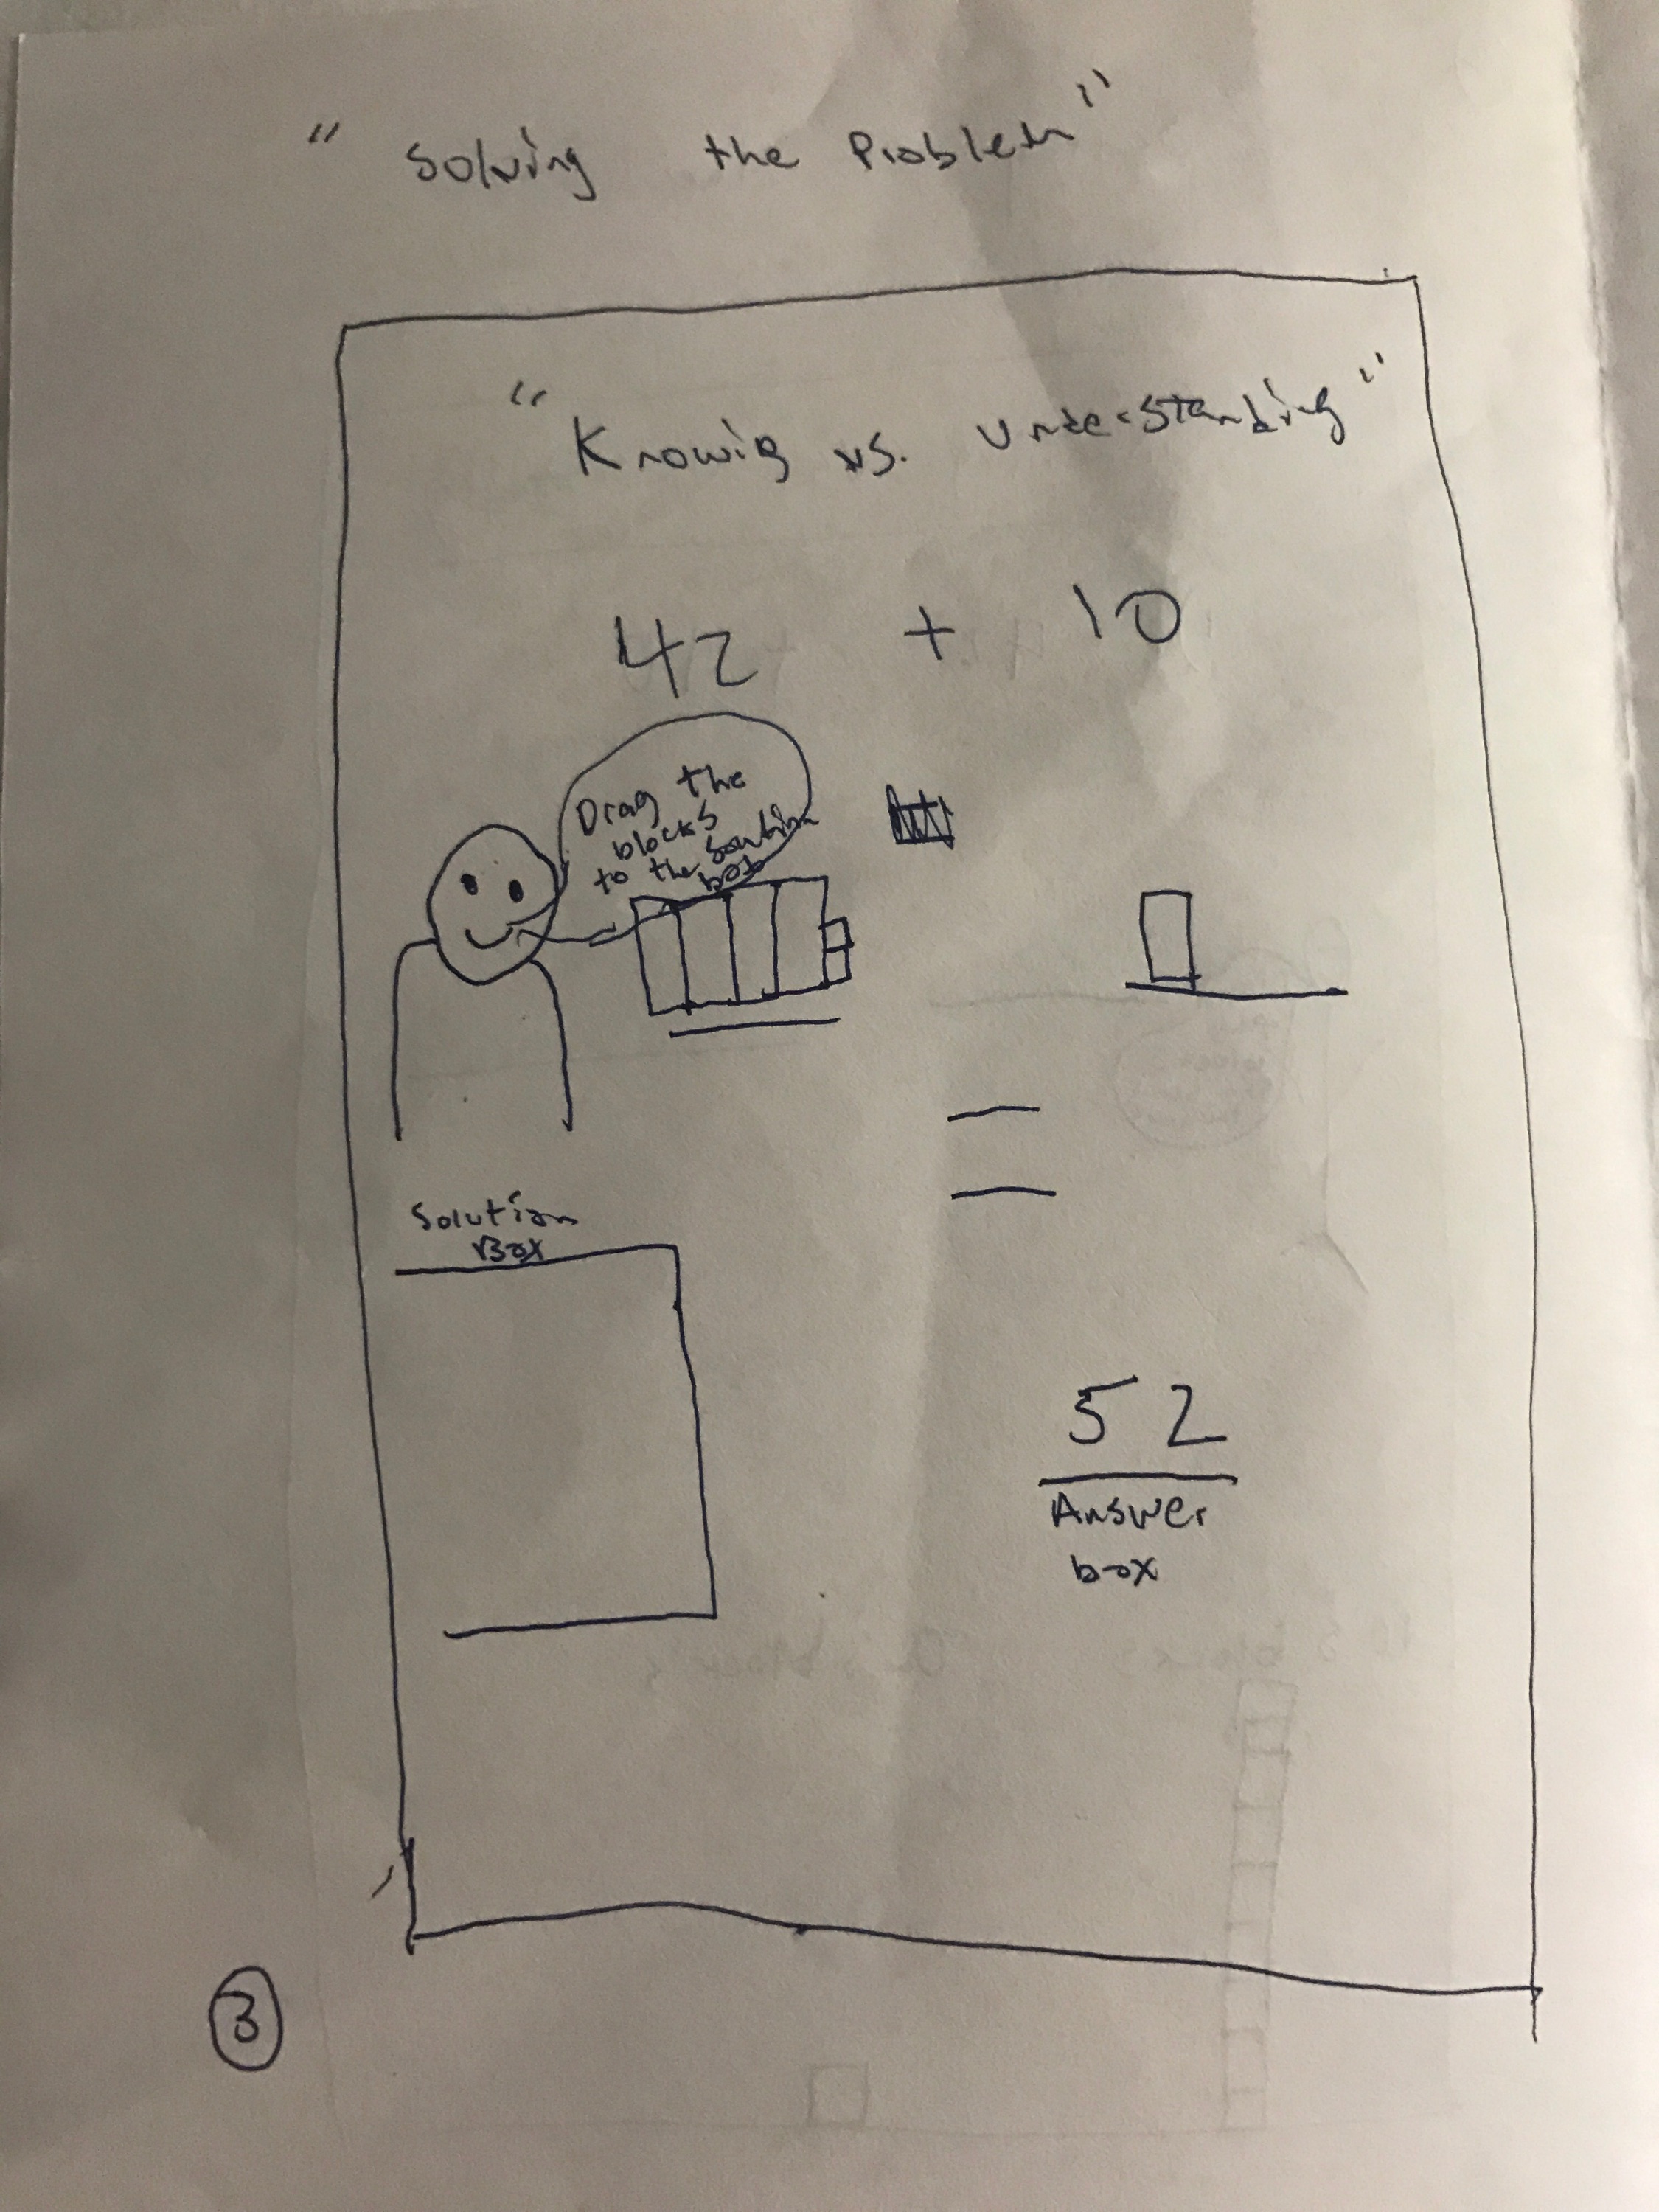 "Solving the Problem"
"Knowig vs. Understanding"
42 + 10
Drag the
blocks
to the solution
box
=
Solution
Box
52
Answer
box
3